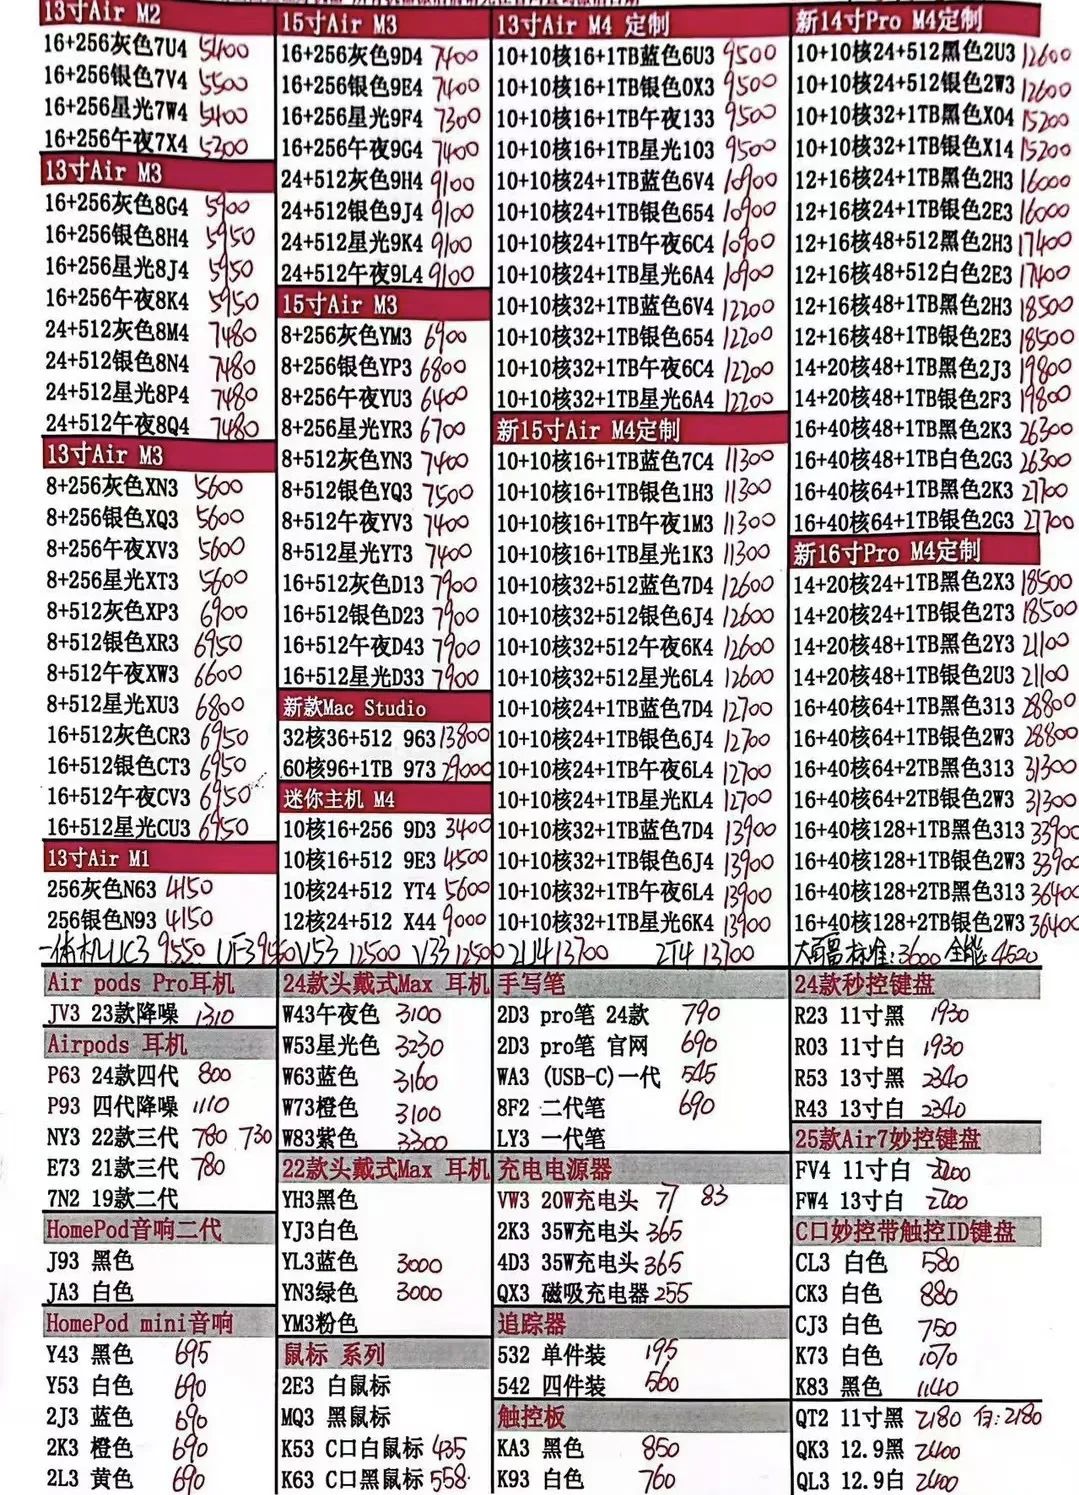 13寸Air M2
16+256灰色7U4 5400
16+256银色7V4 5500
16+256星光7W4 5400
16+256午夜7X4 5200
13寸Air M3
16+256灰色8G4 5900
16+256银色8H4 5950
16+256星光8J4 5950
16+256午夜8K4 5950
24+512灰色8M4 7480
24+512银色8N4 7480
24+512星光8P4 7480
24+512午夜8Q4 7480
13寸Air M3
8+256灰色XN3 5600
8+256银色XQ3 5600
8+256午夜XV3 5600
8+256星光XT3 5600
8+512灰色XP3 6900
8+512银色XR3 6950
8+512午夜XW3 6600
8+512星光XU3 6800
16+512灰色CR3 6950
16+512银色CT3 6950
16+512午夜CV3 6950
16+512星光CU3 6950
13寸Air M1
256灰色N63 4150
256银色N93 4150
15寸Air M3
16+256灰色9D4 7400
16+256银色9E4 7400
16+256星光9F4 7300
16+256午夜9G4 7400
24+512灰色9H4 9100
24+512银色9J4 9100
24+512星光9K4 9100
24+512午夜9L4 9100
15寸Air M3
8+256灰色YM3 6900
8+256银色YP3 6800
8+256午夜YU3 6400
8+256星光YR3 6700
8+512灰色YN3 7400
8+512银色YQ3 7500
8+512午夜YV3 7400
8+512星光YT3 7400
16+512灰色D13 7900
16+512银色D23 7900
16+512午夜D43 7900
16+512星光D33 7900
新款Mac Studio
32核36+512 963 13800
60核96+1TB 973 29000
迷你主机 M4
10核16+256 9D3 3400
10核16+512 9E3 4500
10核24+512 YT4 5600
12核24+512 X44 9000
13寸Air M4 定制
10+10核16+1TB蓝色6U3 9500
10+10核16+1TB银色0X3 9500
10+10核16+1TB午夜133 9500
10+10核16+1TB星光103 9500
10+10核24+1TB蓝色6V4 10900
10+10核24+1TB银色654 10900
10+10核24+1TB午夜6C4 10900
10+10核24+1TB星光6A4 10900
10+10核32+1TB蓝色6V4 12200
10+10核32+1TB银色654 12200
10+10核32+1TB午夜6C4 12200
10+10核32+1TB星光6A4 12200
新15寸Air M4定制
10+10核16+1TB蓝色7C4 11300
10+10核16+1TB银色1H3 11300
10+10核16+1TB午夜1M3 11300
10+10核16+1TB星光1K3 11300
10+10核32+512蓝色7D4 12600
10+10核32+512银色6J4 12600
10+10核32+512午夜6K4 12600
10+10核32+512星光6L4 12600
10+10核24+1TB蓝色7D4 12700
10+10核24+1TB银色6J4 12700
10+10核24+1TB午夜6L4 12700
10+10核24+1TB星光KL4 12700
10+10核32+1TB蓝色7D4 13900
10+10核32+1TB银色6J4 13900
10+10核32+1TB午夜6L4 13900
10+10核32+1TB星光6K4 13900
新14寸Pro M4定制
10+10核24+512黑色2U3 12600
10+10核24+512银色2W3 12600
10+10核32+1TB黑色X04 15200
10+10核32+1TB银色X14 15200
12+16核24+1TB黑色2H3 16000
12+16核24+1TB银色2E3 16000
12+16核48+512黑色2H3 17400
12+16核48+512白色2E3 17400
12+16核48+1TB黑色2H3 18500
12+16核48+1TB银色2E3 18500
14+20核48+1TB黑色2J3 19800
14+20核48+1TB银色2F3 19800
16+40核48+1TB黑色2K3 26300
16+40核48+1TB白色2G3 26300
16+40核64+1TB黑色2K3 27700
16+40核64+1TB银色2G3 27700
新16寸Pro M4定制
14+20核24+1TB黑色2X3 18500
14+20核24+1TB银色2T3 18500
14+20核48+1TB黑色2Y3 21100
14+20核48+1TB银色2U3 21100
16+40核64+1TB黑色313 28800
16+40核64+1TB银色2W3 28800
16+40核64+2TB黑色313 31300
16+40核64+2TB银色2W3 31300
16+40核128+1TB黑色313 33900
16+40核128+1TB银色2W3 33900
16+40核128+2TB黑色313 36400
16+40核128+2TB银色2W3 36400
一体机UC3 9550 UF3 V53 12500 V33 12500 2U4 13700 2T4 13700 标准:3600 全能:4520
Air pods Pro耳机
JV3 23款降噪 1310
Airpods 耳机
P63 24款四代 800
P93 四代降噪 1110
NY3 22款三代 780 730
E73 21款三代 780
7N2 19款二代
HomePod音响二代
J93 黑色
JA3 白色
HomePod mini音响
Y43 黑色 695
Y53 白色 690
2J3 蓝色 690
2K3 橙色 690
2L3 黄色 690
24款头戴式Max 耳机
W43午夜色 3100
W53星光色 3230
W63蓝色 3160
W73橙色 3100
W83紫色 3300
22款头戴式Max 耳机
YH3黑色
YJ3白色
YL3蓝色 3000
YN3绿色 3000
YM3粉色
鼠标 系列
2E3 白鼠标
MQ3 黑鼠标
K53 C口白鼠标 435
K63 C口黑鼠标 558
手写笔
2D3 pro笔 24款 790
2D3 pro笔 官网 690
WA3 (USB-C)一代 545
8F2 二代笔 690
LY3 一代笔
充电电源器
VW3 20W充电头 77 83
2K3 35W充电头 365
4D3 35W充电头 365
QX3 磁吸充电器 255
追踪器
532 单件装 195
542 四件装 560
触控板
KA3 黑色 850
K93 白色 760
24款秒控键盘
R23 11寸黑 1930
R03 11寸白 1930
R53 13寸黑 2340
R43 13寸白 2340
25款Air7妙控键盘
FV4 11寸白
FW4 13寸白
C口妙控带触控ID键盘
CL3 白色 580
CK3 白色 880
CJ3 白色 750
K73 白色 1070
K83 黑色 1140
QT2 11寸黑 2180 白:2180
QK3 12.9黑 2400
QL3 12.9白 2400